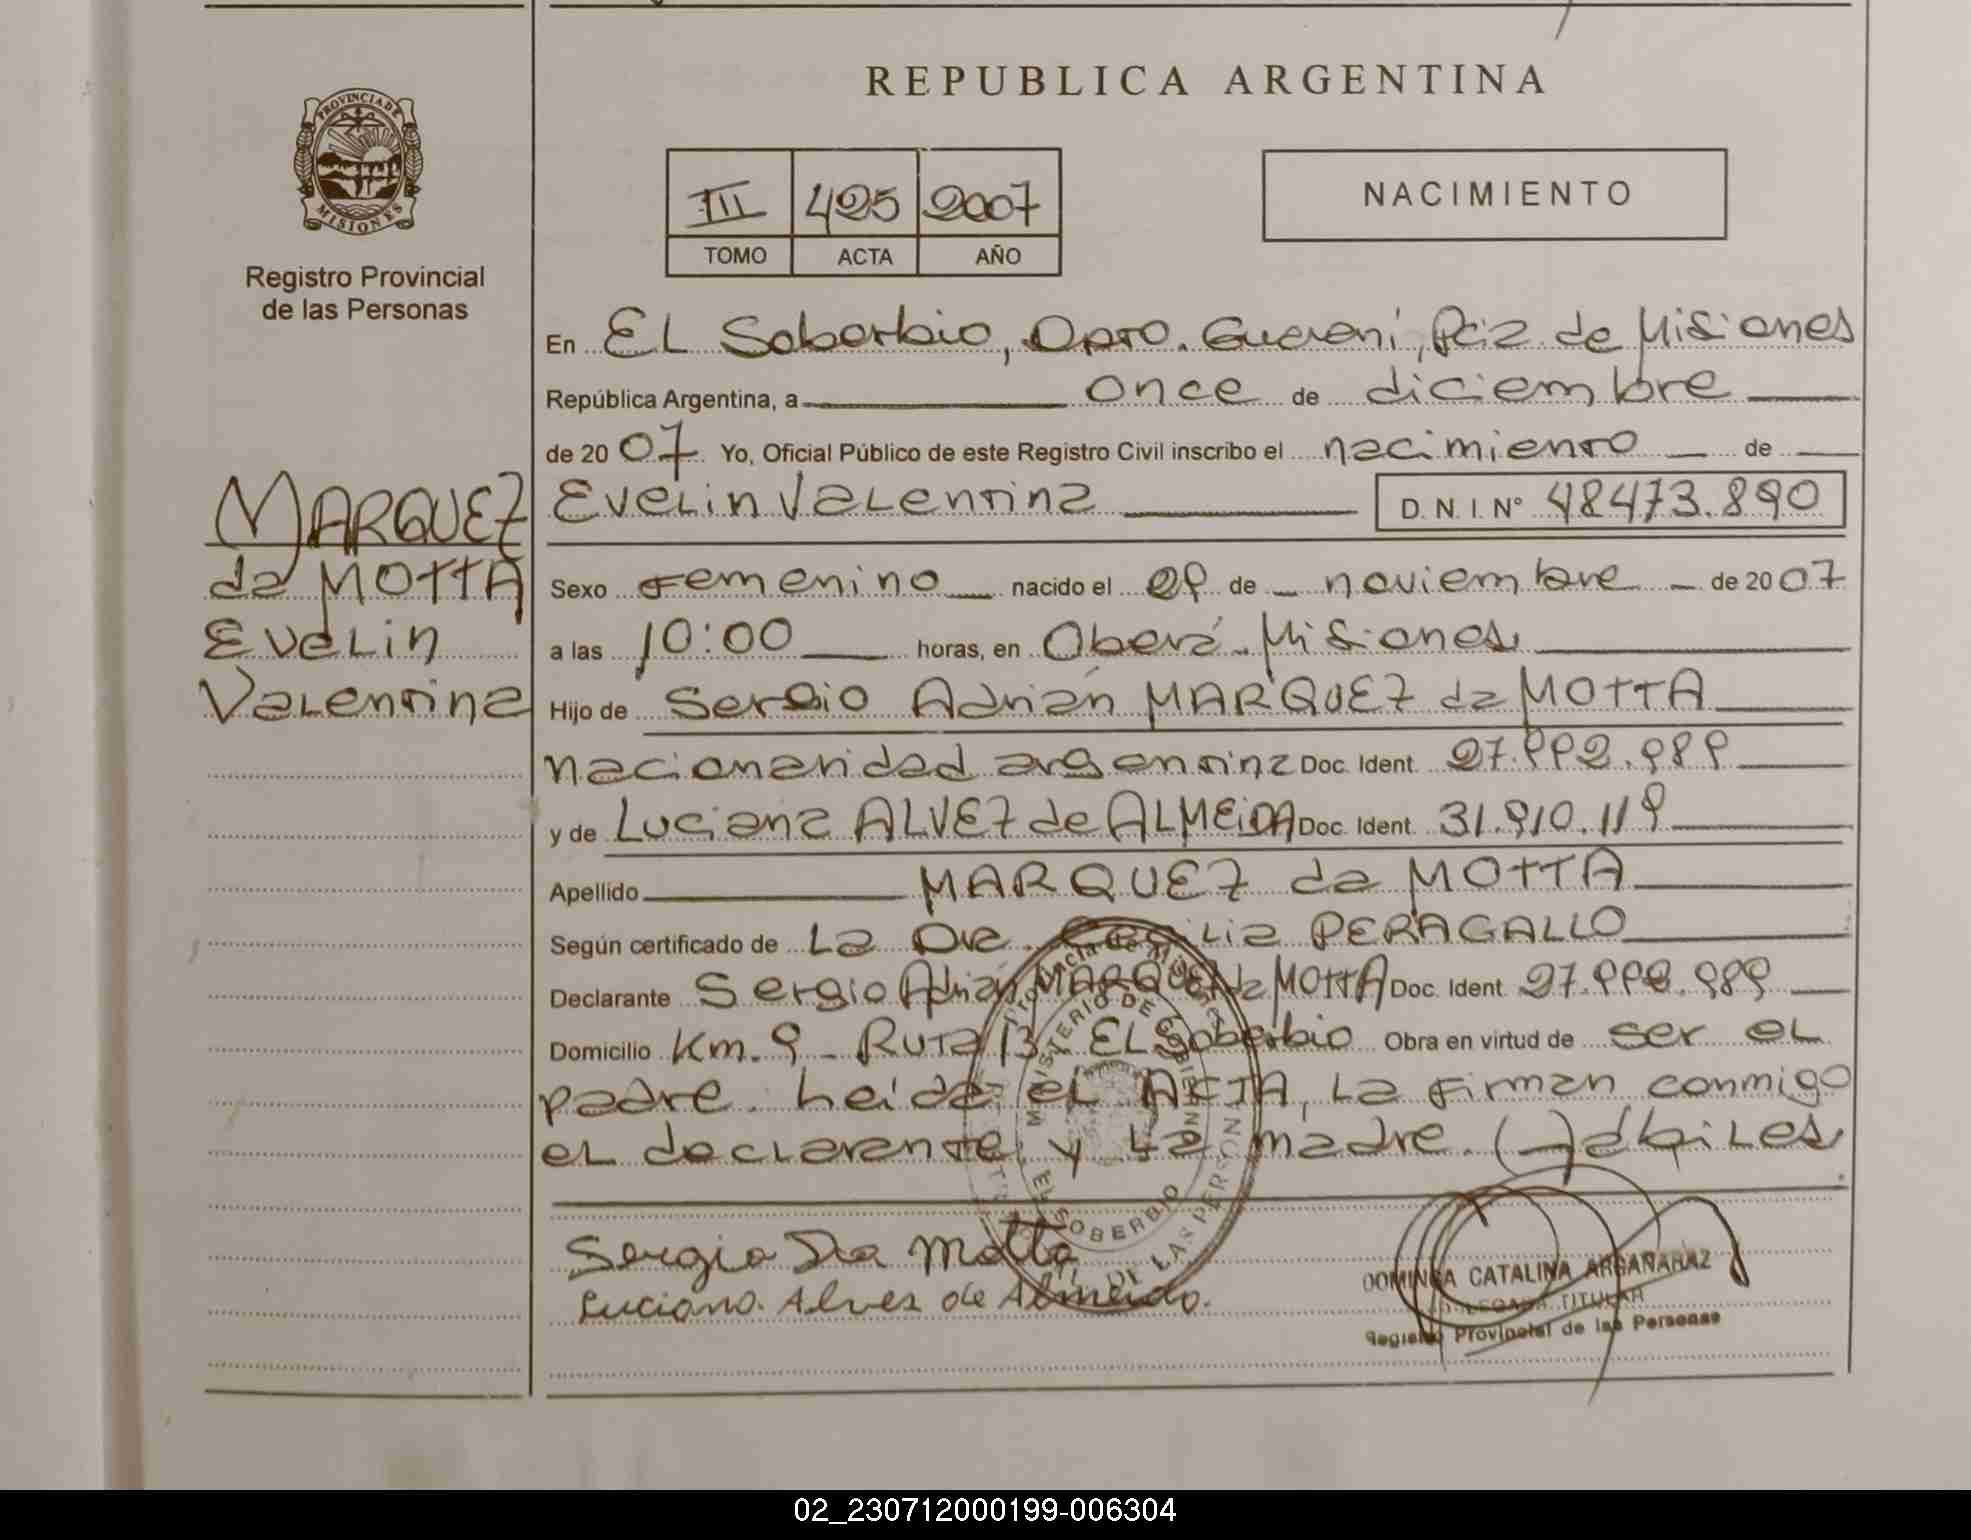 REPUBLICA ARGENTINA
PROVINCIA DE MISIONES
Registro Provincial
de las Personas
III 425 2007
TOMO ACTA AÑO
NACIMIENTO
En EL Soberbio, Dpto. Guaraní, Pcia de Misiones
República Argentina, a once de diciembre
de 2007 Yo, Oficial Público de este Registro Civil inscribo el nacimiento de
Evelin Valentina D.N.I.Nº 48473.890
MARQUEZ
da MOTTA
Evelin
Valentina
Sexo Femenino nacido el 09 de noviembre de 2007
a las 10:00 horas, en Oberá. Misiones
Hijo de Sergio Adrián MARQUEZ da MOTTA
nacionalidad argentina Doc. Ident. 27.992.989
y de Luciana ALVEZ de ALMEIDA Doc. Ident. 31.910.119
Apellido MARQUEZ da MOTTA
Según certificado de La Dra. Cecilia PERAGALLO
Declarante Sergio Adrián MARQUEZ da MOTTA Doc. Ident. 27.992.989
Domicilio Km. 9 - Ruta 13 EL Soberbio Obra en virtud de ser el
padre. Leída el ACTA, La firman conmigo
el declarante y La madre.
Sergio Da Motta
Luciana Alvez de Almeida.
Provincia de Misiones
MINISTERIO DE GOBIERNO
EL SOBERBIO
DE LAS PERSONAS
DOMINGA CATALINA ARGAÑARAZ
DELEGADA TITULAR
Registro Provincial de las Personas
02_230712000199-006304